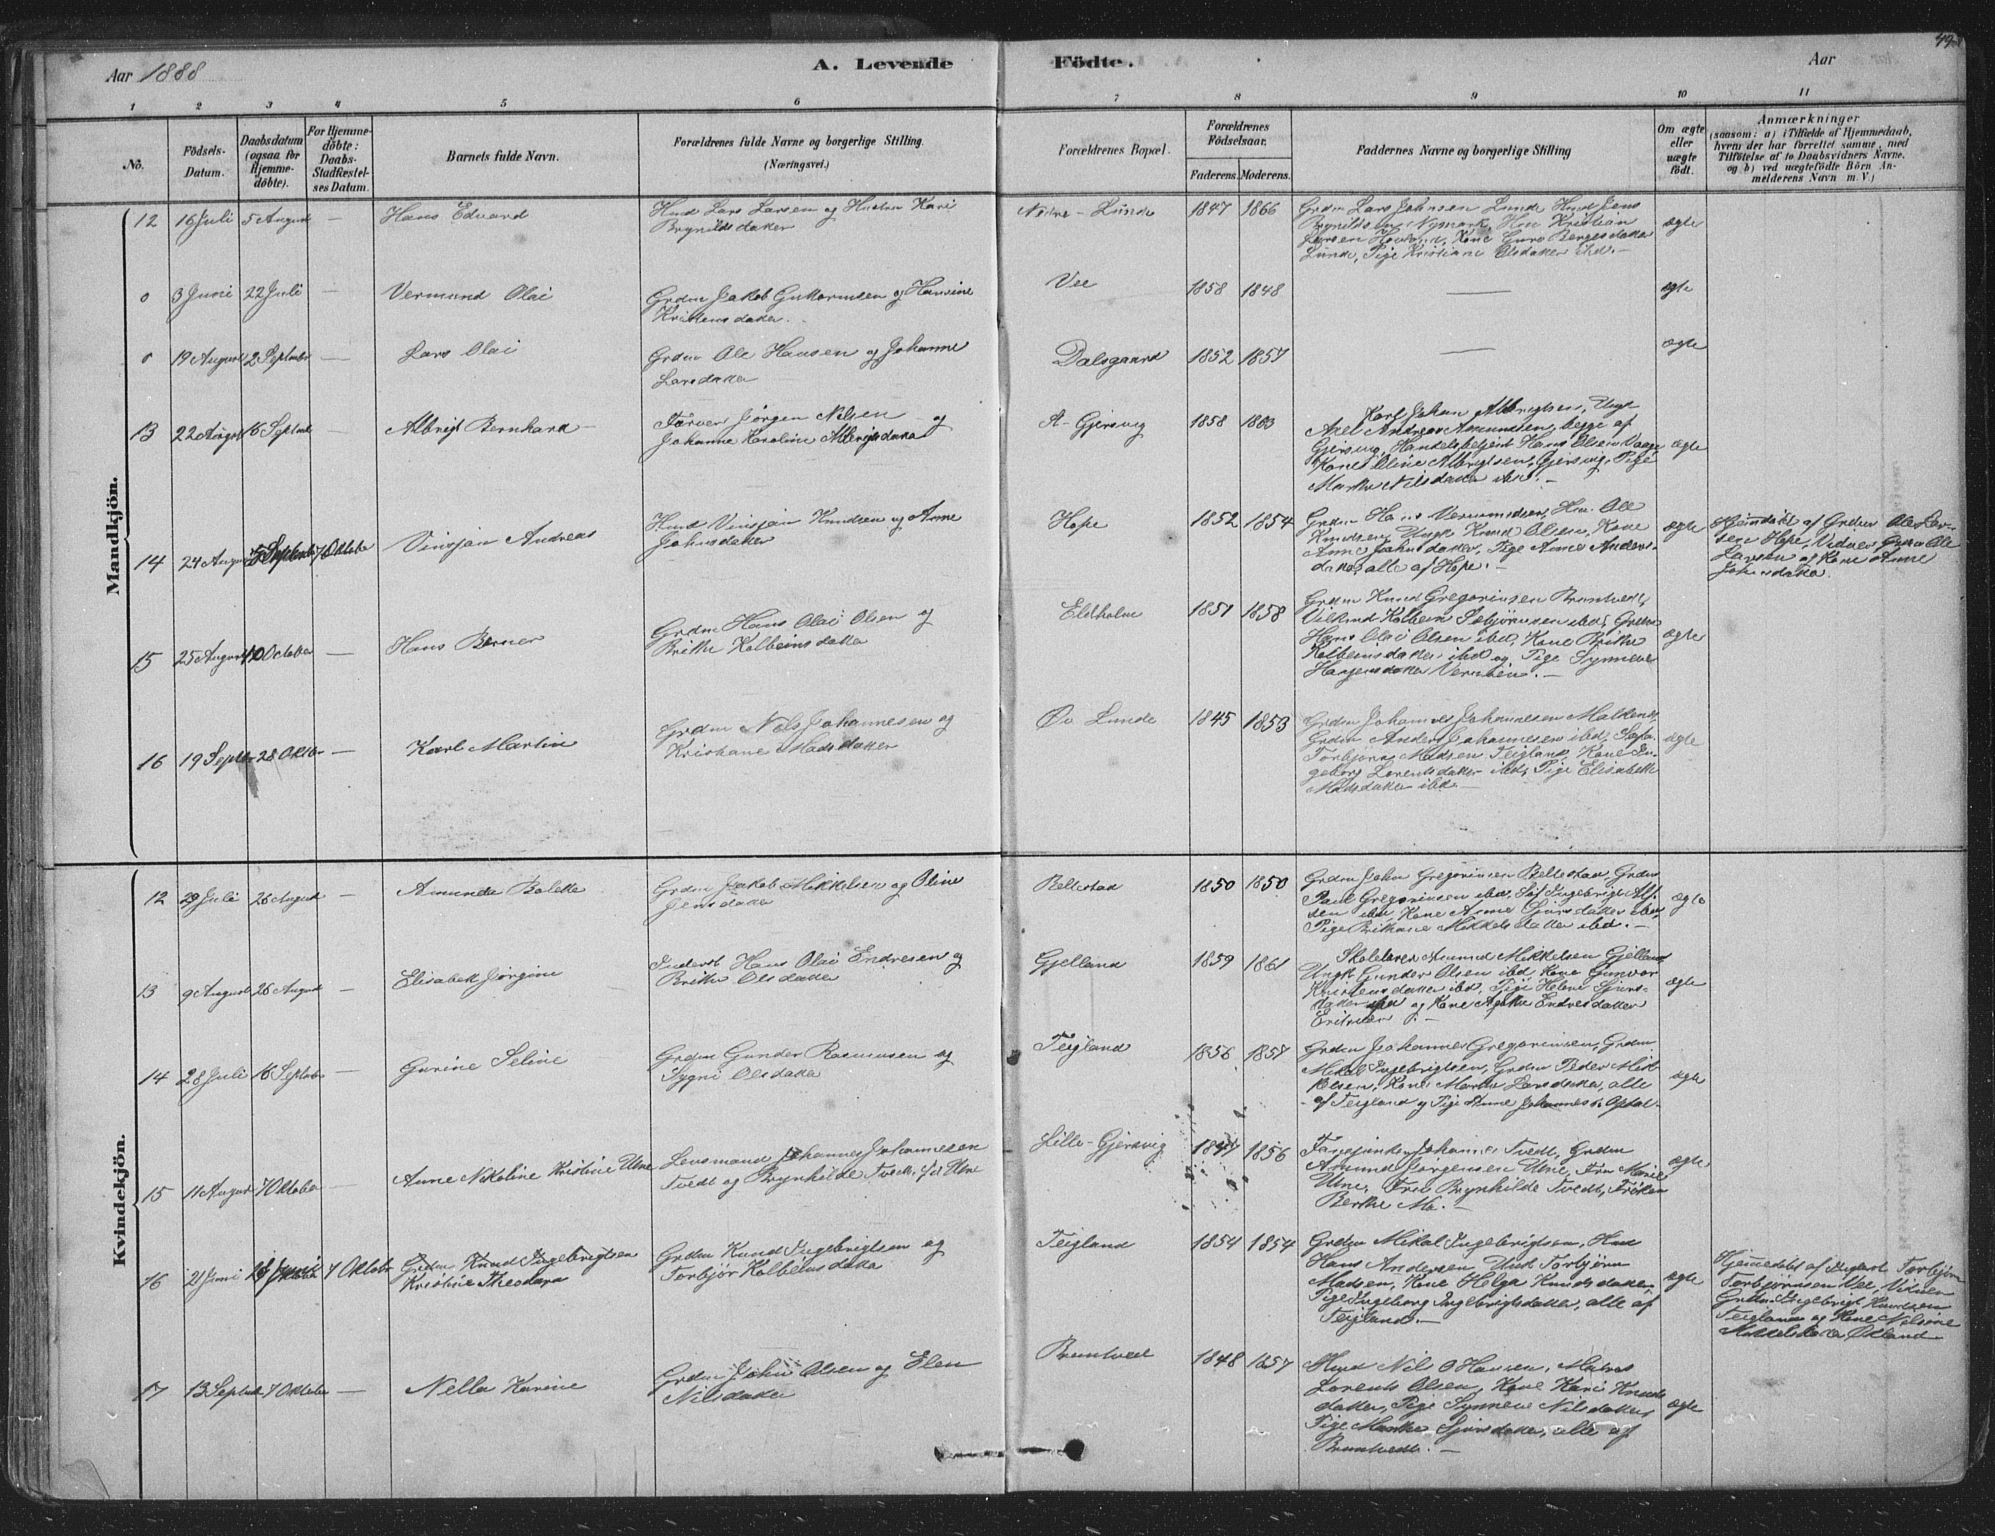 Aar 1888
A. Levende Födte.
Aar
1 2 3 4 5 6 7 8 9 10 11
No.
Födsels-
Datum.
Daabsdatum
(ogsaa for
Hjemme-
döbte).
For Hjemme-
döbte:
Daabs-
Stadfæstel-
ses Datum.
Barnets fulde Navn.
Forældrenes fulde Navne og borgerlige Stilling.
(Næringsvei.)
Forældrenes Bopæl.
Forældrenes
Födselsaar.
Faderens. Moderens.
Faddernes Navne og borgerlige Stilling
Om ægte
eller
uægte
födt.
Anmærkninger
(saasom: a) i Tilfælde af Hjemmedaab,
hvem der har forrettet samme, med
Tilföielse af to Daabsvidners Navne.
og b) ved uægtefödte Börn An-
melderens Navn m. V.)
Mandkjön.
12 16 Juli 5 August — Hans Edvard
Husmd Lars Larsen og Hustru Kari
Brynildsdatter
Nedre-Lunde 1847 1866
Grdm Lars Johnsen Lunde, Husmd Jens
Brynildsen Nymark, Hm Kristian
Larsen Kone Guro Bergesdatter
Lunde, Pige Kristiane Olsdatter ibd. —
ægte
0 3 Juni 22 Juli — Vermund Olai
Grdm Jakob Guttormsen og Hansine
Kristensdatter.
Vee 1858 1848 — ægte
0 19 August 2 Septembr — Lars Olai
Grdm Ole Hansen og Johanne
Larsdatter
Dalsgaard 1852 1857 — ægte
13 22 August 16 Septemb Albrigt Bernhard —
Farver Jörgen Nilsen og
Johanne Karoline Albrigtsdatter
A-Gjersvig 1858 1863
Karl Johan Albrigtsen, Ungk
Axel Andreas Amundsen, begge af
Gjersvig, Handelsbetjent Hans Olsen Vaage,
Kone Oline Albrigtsen, Gjersvig, Pige
Marthe Nilsdatter ibd. —
ægte
14 24 August Septembr 7 Oktober Vinsjan Andreas
Husmd Vinsjan Knudsen og Anne
Johnsdatter
Hope 1852 1854
Grdm Hans Vermundsen, Hm Ole
Knudsen, Ungk Knud Olsen, Kone
Anne Johnsdatter, Pige Anne Anders-
datter, alle af Hope. —
ægte
Hjemdöbt af Grdm Ole Lar-
sen Hope, Vidner, Grdm Ole
Larsen og Kone Anne
Johnsdatter.
15 25 August 10 October — Hans Berner
Grdm Hans Olai Olsen og
Brithe Kolbeinsdatter
Eltholm 1851 1858
Grdm Knud Gregoriusen Brantvedt,
Kolbein Torbjörnsen ibd, Grdm
Hans Olai Olsen ibd, Kone Brithe
Kolbeinsdatter ibd og Pige Synneve
ægte
16 19 Septbr 28 Oktbr — Karl Martin
Grdm Nils Johannesen og
Kristiane Madsdatter
Öv Lunde 1845 1853
Grdm Johannes Johannesen
Grdm Anders Johannesen ibd,
Torbjörn Madsen Teigland, Kone In-
geborg Lorentsdatter ibd, Pige Elisabeth
Madsdatter ibd —
ægte
Kvindekjön.
12 29 Juli 26 August — Amunda Bolette
Grdm Jakob Mikkelsen og Oline
Jensdatter
Beltestad 1850 1850
Grdm John Gregoriusen Beltestad, Grdm
Paul Gregoriusen ibd,
Kone Anne Sjursdatter ibd,
Pige Brithane Mikkelsdatter ibd. —
ægte
13 9 August 26 August — Elisabeth Jörgine
Inderst Hans Olai Endresen og
Brithe Olsdatter
Gjelland 1859 1861
Skolelærer Amund Mikkelsen Gjelland,
Ungk Gunder Olsen ibd, Kone Gunvor
Kristensdatter ibd, Pige Helene Sjurs-
datter ibd og Kone Agathe Endresdatter
ægte
14 28 Juli 16 Septbr — Gurine Seline
Grdm Gunder Rasmusen og
Sygni Olsdatter
Teigland 1856 1857
Grdm Johannes Gregoriusen, Grdm
Mikal Ingebrigtsen, Grdm Peder Mik-
kelsen, Kone Marthe Larsdatter, alle
af Teigland og Pige Anne Johannesd.
ægte
15 11 August 7 Oktober — Anne Nikoline Kristine Utne
Lensmand Johannes Johannesen
Tvedt og Brynhilde Tvedt, föd Utne
Lille-Gjersvig 1847 1856
Johannes Tvedt, Grdm
Amund Jörgensen Utne, Fru Marie
Utne, Fru Brynhilde Tvedt, Fröken
Berthe
ægte
16 21 Juni 7 Oktober
Grdm Knud Ingebrigtsen
Kristine Theodora
Grdm Knud Ingebrigtsen og
Torbjör Kolbeinsdatter
Teigland 1854 1854
Grdm Mikal Ingebrigtsen, Husmd
Hans Andersen, Ungk Torbjörn
Madsen, Kone Helga Knudsdatter
Pige Ingeborg Ingebrigtsdatter, alle af
Teigland. —
ægte
Hjemmedöbt af Torbjörn
Torbjörnsen Vee, Vidner
Grdm Ingebrigt Knudsen
Teigland og Kone Nilsine
Mikkelsdatter Ökland —
17 13 Septbr 7 Oktober — Nella Karine
Grdm John Olsen og Elen
Nilsdatter
Brantvedt 1848 1857
Husmd Nils O Hansen,
Lorents Olsen, Kone Kari Knuds-
datter, Pige Synneve Nilsdatter
Pige Marthe Sjursdatter, alle af
Brantvedt. —
ægte